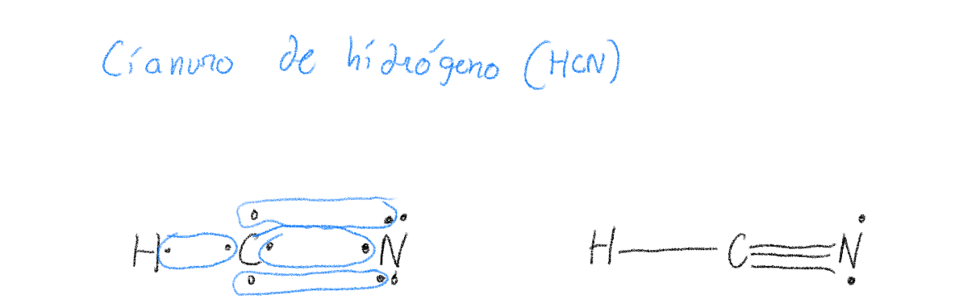 Cianuro de hidrógeno (HCN)
H C N H C N